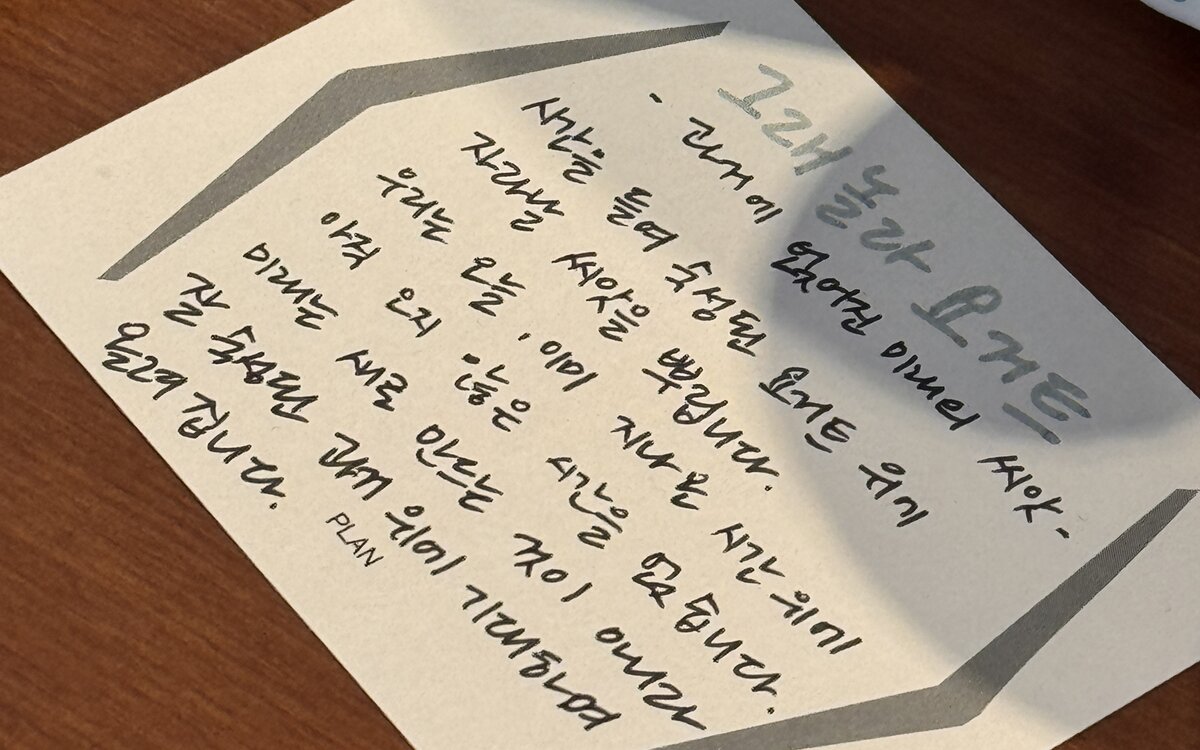 그래놀라 요거트
- 과거에 얹어진 미래의 씨앗 -
시간을 들여 숙성된 요거트 위에
자라날 씨앗을 뿌립니다.
우리는 오늘, 이미 지나온 시간 위에
아직 오지 않은 시간을 얹습니다.
미래는 새로 만드는 것이 아니라
잘 숙성된 과거 위에
올려집니다.
PLAN